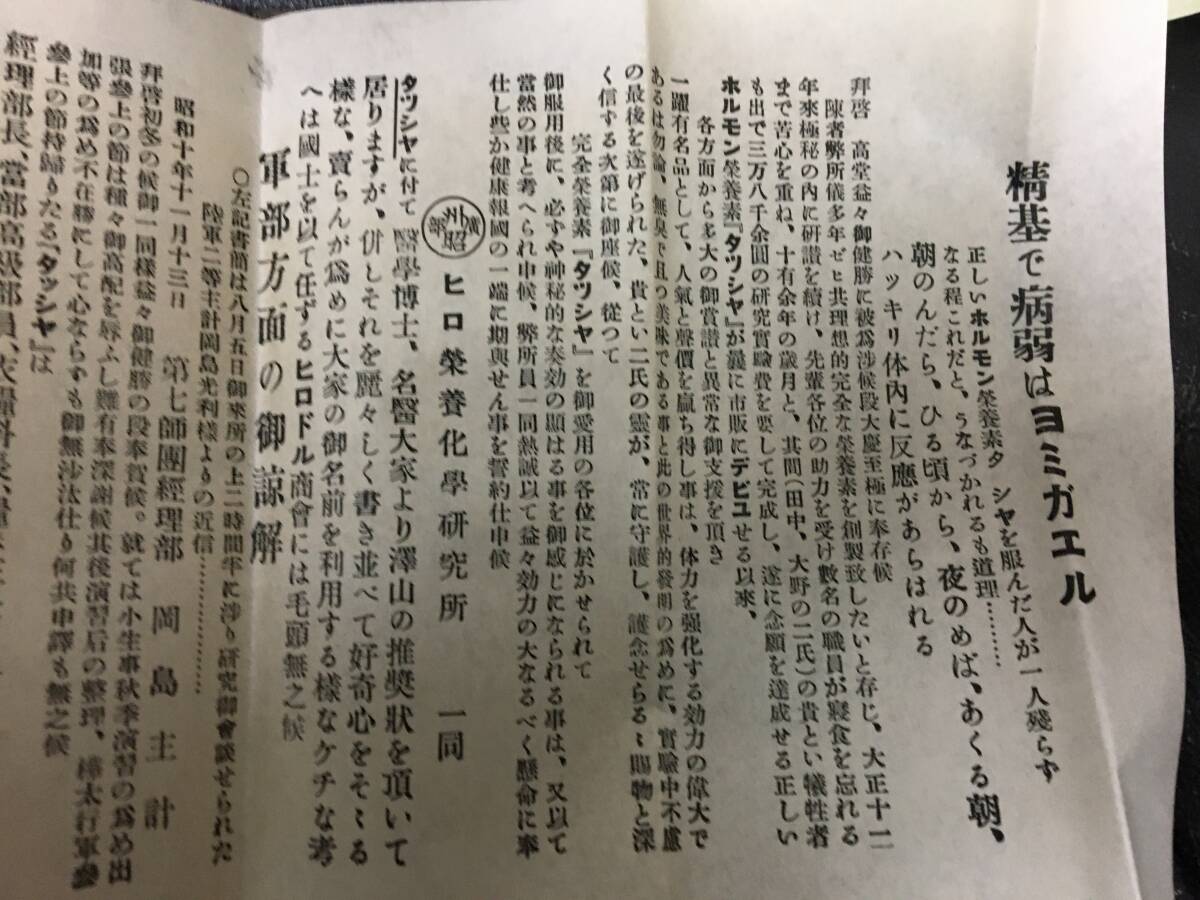 精基で病弱はヨミガエル
正しいホルモン榮養素タ シヤを服んだ人が一人殘らず
なる程これだと、うなづかれるも道理………
朝のんだら、ひる頃から、夜のめば、あくる朝、
ハッキリ体內に反應があらはれる
拜啓 高堂益々御健勝に被爲涉候段大慶至極に奉存候
陳者弊所儀多年ゼヒ共理想的完全な榮養素を創製致したいと存じ、大正十二
年來極秘の內に研讃を續け、先輩各位の助力を受け數名の職員が寢食を忘れる
まで苦心を重ね、十有余年の歲月と、其間(田中、大野の二氏)の貴とい犧牲者
も出で三万八千余圓の硏究實驗費を要して完成し、遂に念願を達成せる正しい
ホルモン榮養素『タツシヤ』が曩に市販にデビユせる以來、
各方面から多大の御賞讃と異常な御支援を頂き
一躍有名品として、人氣と聲價を贏ち得し事は、体力を强化する効力の偉大で
あるは勿論、無臭で且つ美味である事と此の世界的發明の爲めに、實驗中不慮
の最後を遂げられた、貴とい二氏の靈が、常に守護し、護念せらるゝ賜物と深
く信する次第に御座候、從つて
完全榮養素『タツシヤ』を御愛用の各位に於かせられて
御服用後に、必ずや神秘的な奏効の顯はる事を御感じになられる事は、又以て
當然の事と考へられ申候、弊所員一同熱誠以て益々効力の大なるべく懸命に奉
仕し些か健康報國の一端に期與せん事を誓約仕申候
ヒロ榮養化學硏究所 一同
タツシヤに付て醫學博士、名醫大家より澤山の推奬狀を頂いて
居りますが、併しそれを麗々しく書き並べて好奇心をそゝる
樣な、賣らんが爲めに大家の御名前を利用する樣なケチな考
へは國士を以て任ずるヒロドル商會には毛頭無之候
軍部方面の御諒解
○左記書簡は八月五日御來所の上二時間半に涉り硏究御會談せられた
陸軍二等主計岡島光利樣よりの近信………………
昭和十年十一月十三日 第七師團經理部 岡島主計
拜啓初冬の候御一同樣益々御健勝の段奉賀候。就ては小生事秋季演習の爲め出
張參上の節は種々御高配を辱ふし難有奉深謝候其後演習后の整理、樺太行軍參
加等の爲め不在勝にして心ならずも御無沙汰仕り何共申譯も無之候
參上の節持歸りたる「タッシヤ」は
經理部長、當部高級部員、